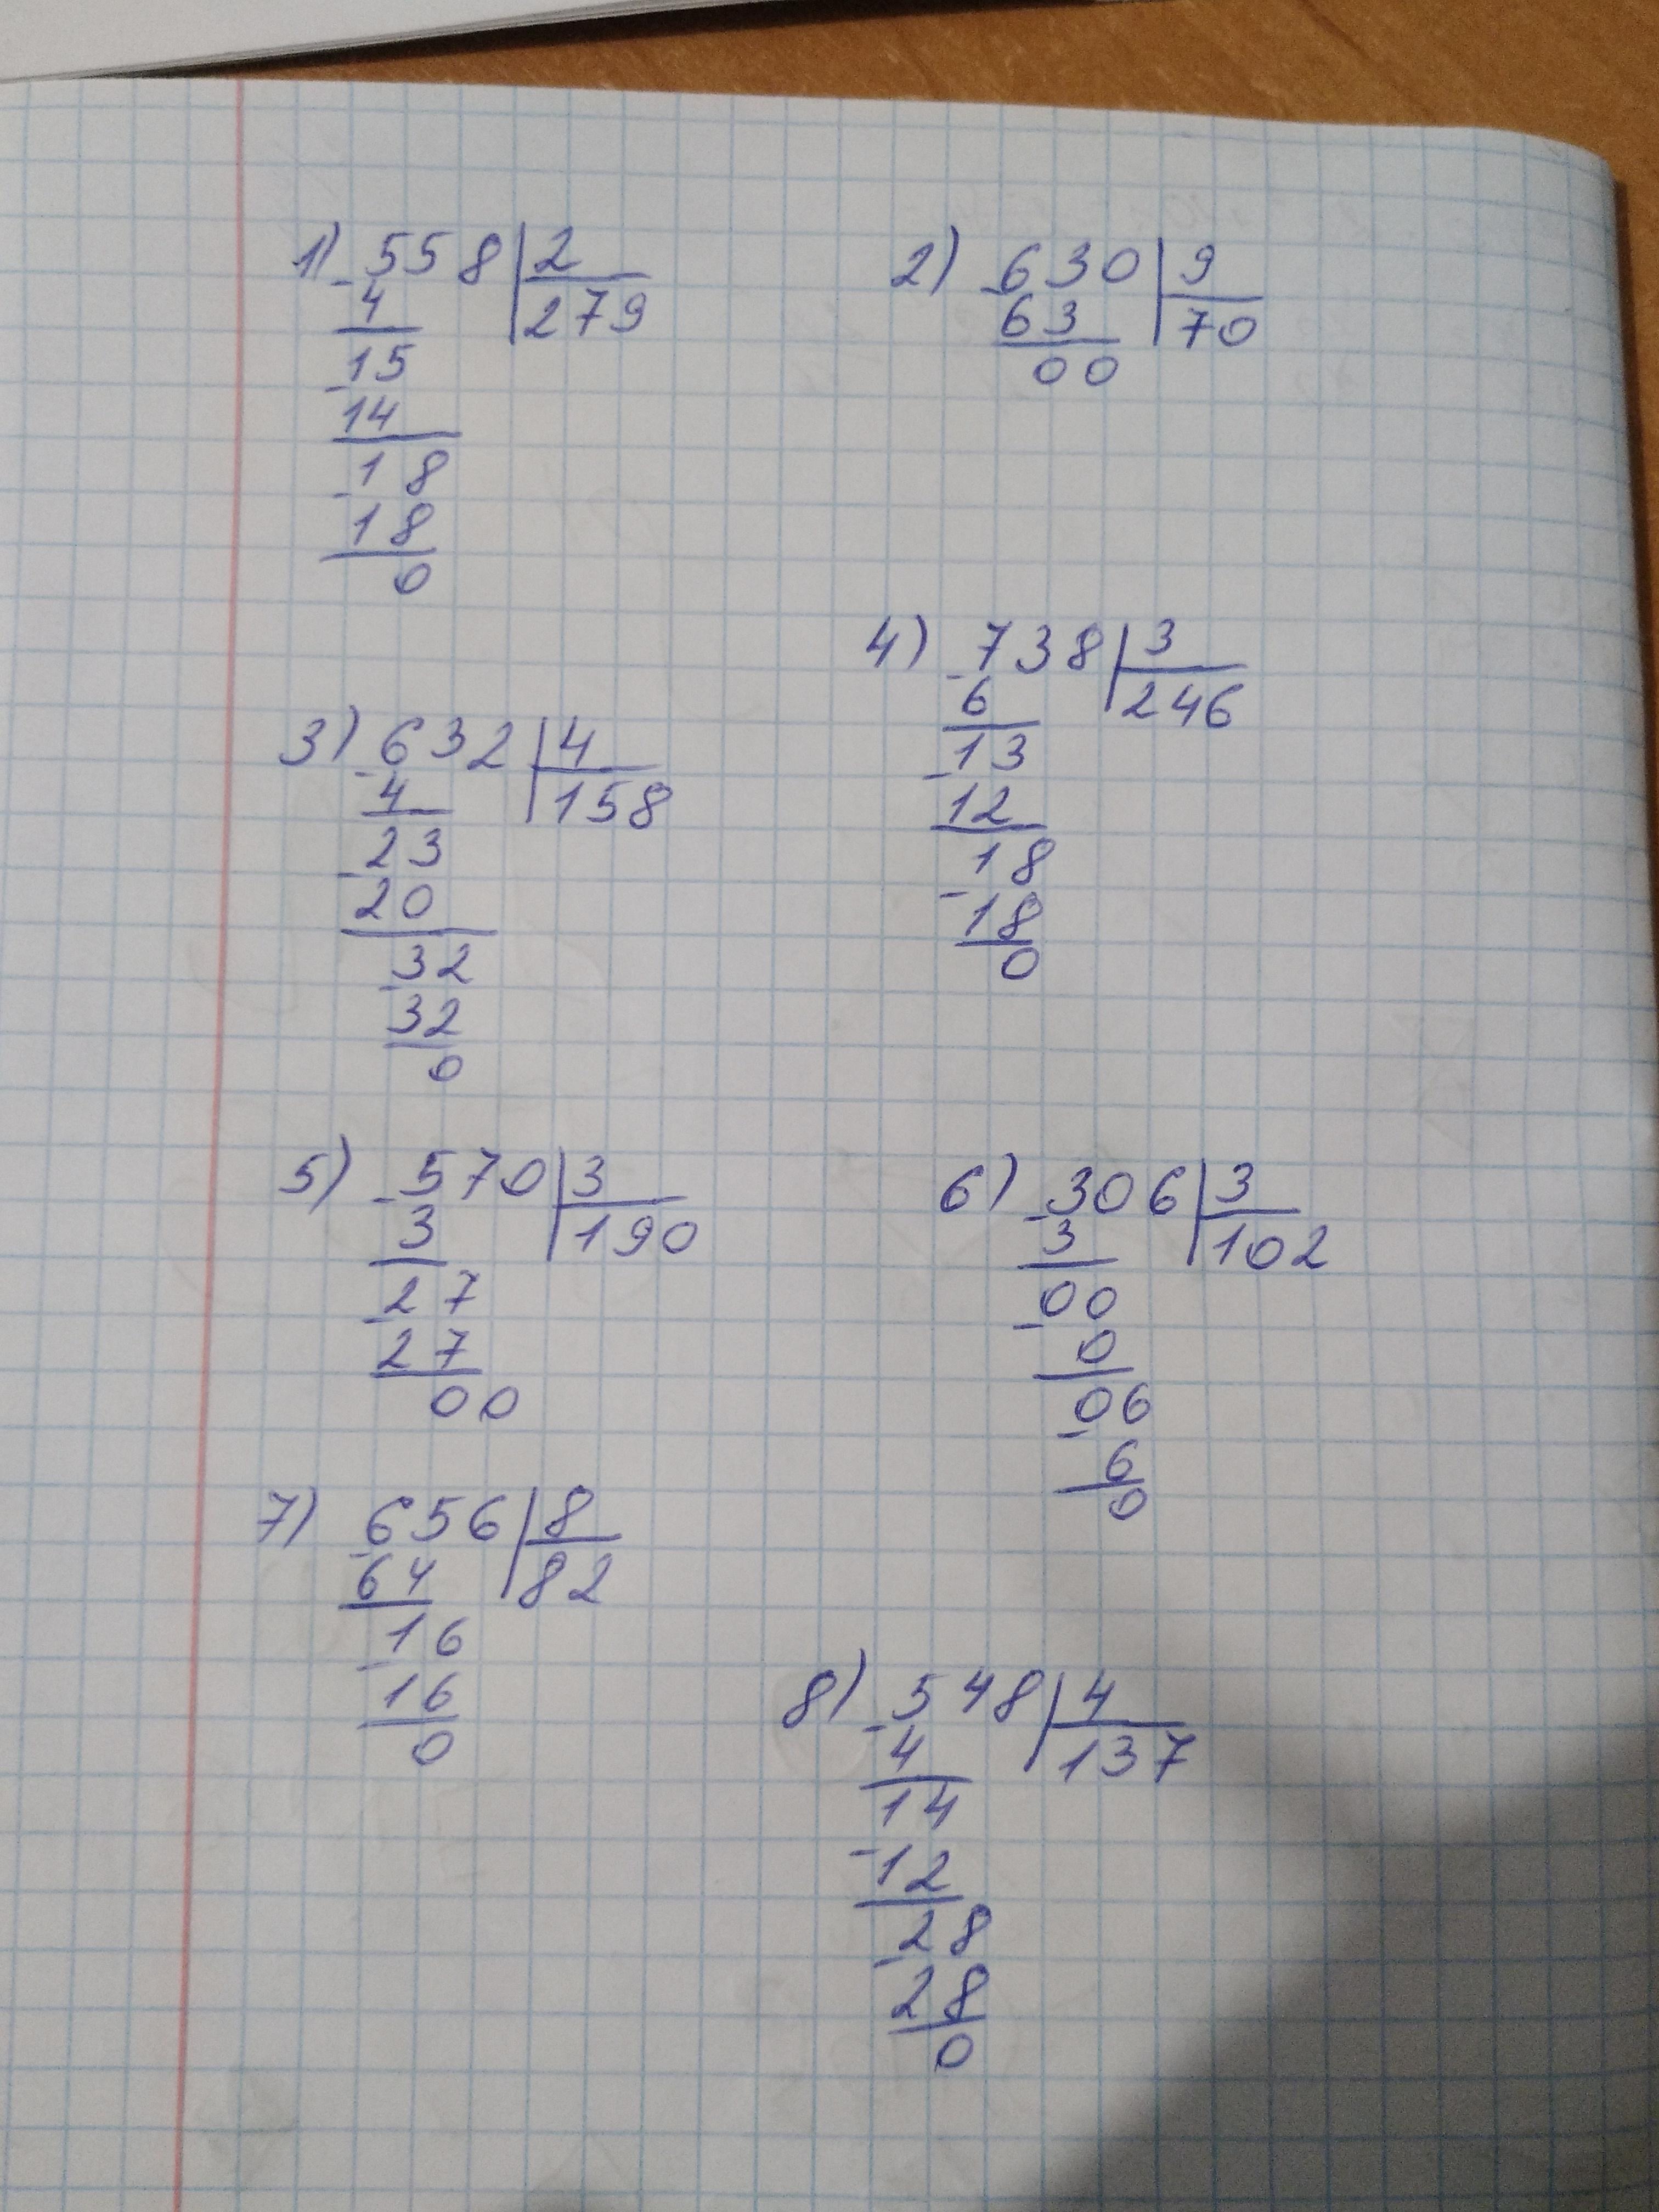 1) 558 | 2
- 4 | 279
15
- 14
18
- 18
0
2) 630 | 9
- 63 | 70
00
3) 632 | 4
- 4 | 158
23
- 20
32
- 32
0
4) 738 | 3
- 6 | 246
13
- 12
18
- 18
0
5) 570 | 3
- 3 | 190
27
- 27
00
6) 306 | 3
- 3 | 102
00
- 0
06
- 6
0
7) 656 | 8
- 64 | 82
16
- 16
0
8) 548 | 4
- 4 | 137
14
- 12
28
- 28
0